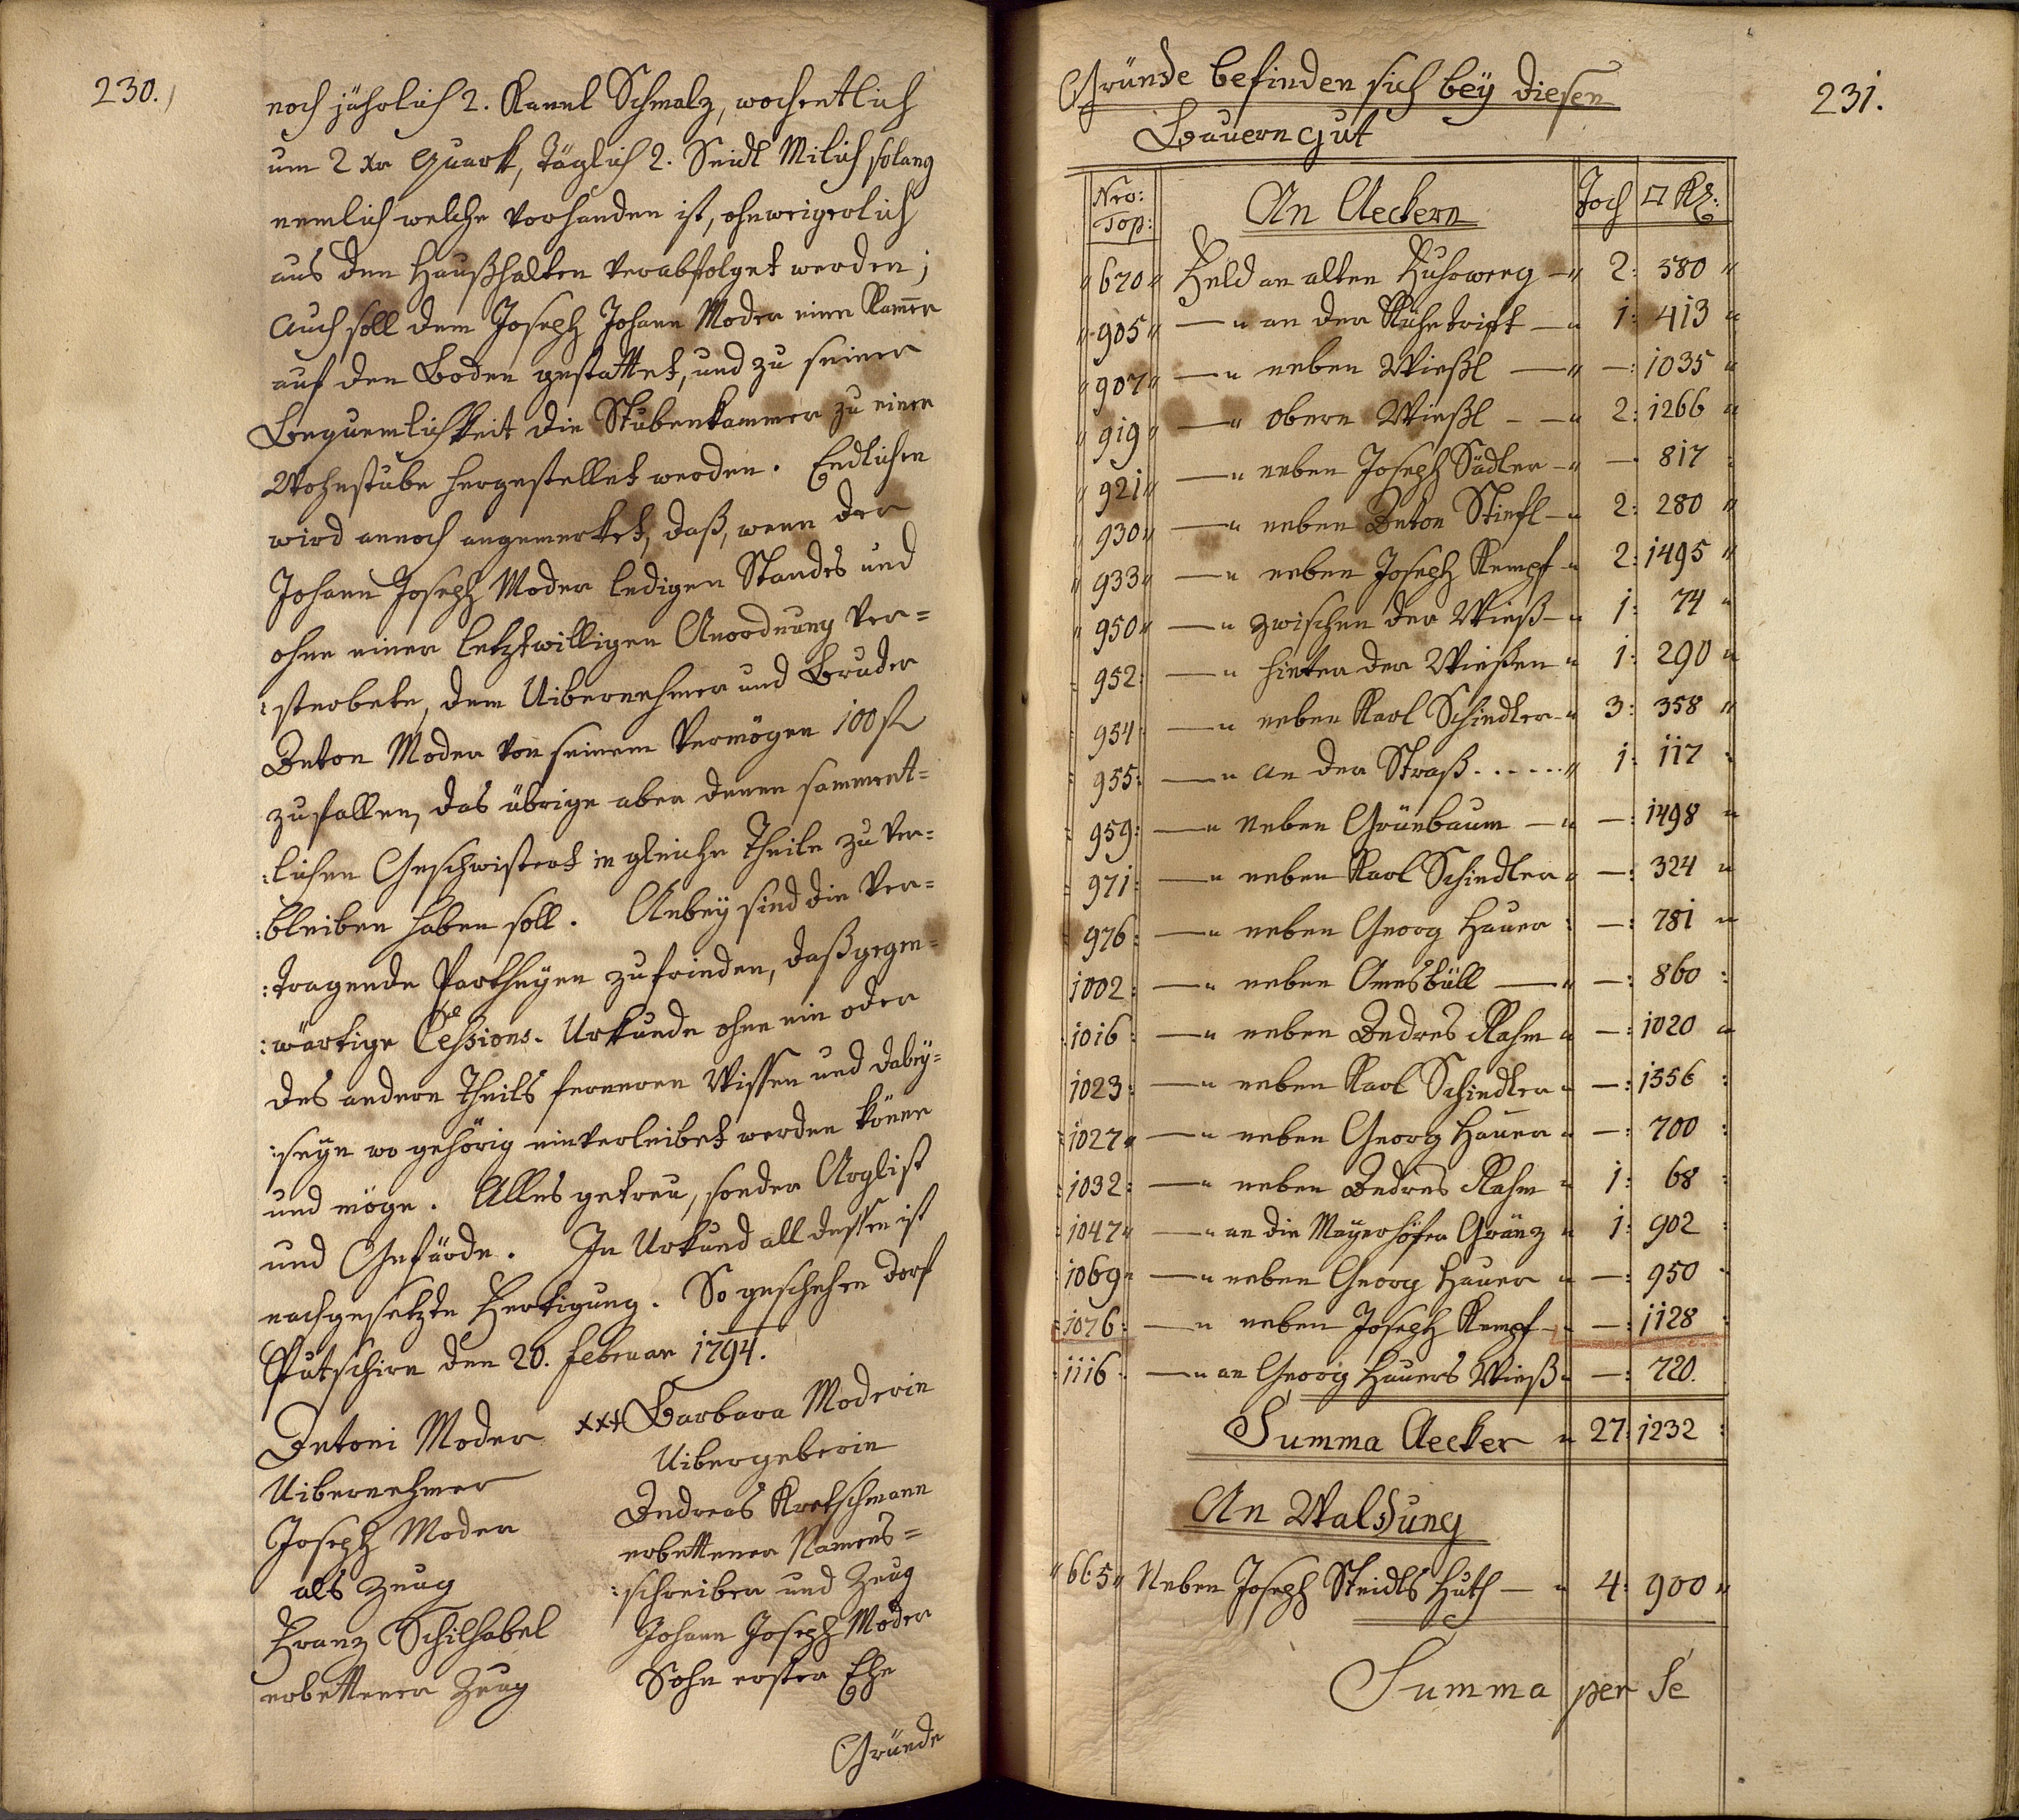 230.
noch jährlich 2. Kanel Schmalz, wochentlich
um 2 xr Quark, täglich 2. Seidl Milich solang
nemlich welche vorhanden ist, ohnweigerlich
aus den Haußhalten verabfolget werden;
Auch soll dem Joseph Johann Moder eine Kam̅er
auf den Boden gestattet, und zu seiner
Bequemlichkeit die Stubenkammer zu einer
Wohnstube hergestellet werden. Endlichen
wird annoch angemerket, daß, wenn der
Johann Joseph Moder ledigen Standes und
ohne einer letztwilligen Anordnung ver=
:sterbete, dem Uibernehmer und Bruder
Anton Moder von seinem Vermögen 100 fl
zufallen, das übrige aber denen samment=
:lichen Geschwistert in gleiche Theile zu ver=
:bleiben haben soll. Anbey sind die ver=
:tragende Partheyen zufrieden, daß gegen=
:wärtige Ceßions-Urkunde ohne ein oder
des andern Theils ferneren Wissen und dabey=
:seyn wo gehörig einverleibet werden könne
und möge. Alles getreu, sonder Arglist
und Gefärde. In Urkund all dessen ist
nachgesetzte Fertigung. So geschehen Dorf
Putschirn den 20. Februar 1794.
Antoni Moder xxx Barbara Moderin
Uibernehmer Uibergeberin
Joseph Moder Andreas Kretschmann
als Zeug erbettener Namens=
:schreiber und Zeug
Franz Schilhabel Johann Joseph Moder
erbettener Zeug Sohn erster Ehe
Gründe
231.
Gründe befinden sich bey diesen
Bauerngut
Nro: Top: An Aeckern Joch □ Kl:
" 670 " Feld an alten Fuhrweeg — " 2: 580 "
" 905 " — " an der Kühetrift — " 1: 413 "
" 907 " — " neben Wießl — " —: 1035 "
" 919 " — " obern Wießl — " 2: 1266 "
" 921 " — " neben Joseph Sädler — " — 817 :
" 930 " — " neben Anton Stiefl — " 2: 280 "
" 933 " — " neben Joseph Kempf " 2: 1495 "
" 950 " — " zwischen der Wieß — " 1: 74 "
: 952: — " hinter der Wießen " 1: 290 "
: 954: — " neben Karl Schindler " 3: 358 "
: 955: — " an der Straß . . . . . " 1: 117 :
: 959: — " neben Grünbaum — " —: 1498 "
: 971: — " neben Karl Schindler " —: 324 "
: 976: — " neben Georg Hauer : —: 781 "
: 1002: — " neben — " —: 860 :
: 1016: — " neben Andres Rahm " —: 1020 "
: 1023: — " neben Karl Schindler " —: 1556 :
: 1027 " — " neben Georg Hauer " —: 700 :
: 1032: — " neben Andres Rahm " 1: 68 :
: 1047 " — " an die Mayerhöfer Gränz " 1: 902 :
: 1069 " — " neben Georg Hauer " —: 950 :
: 1076: — " neben Joseph Kempf — " —: 1128 :
: 1116: — " an Georg Hauers Wieß " —: 720.
Summa Aecker " 27: 1232 :
An Waldung
" 665 " Neben Joseph Steidls Huth — " 4: 900 "
Summa per Sé